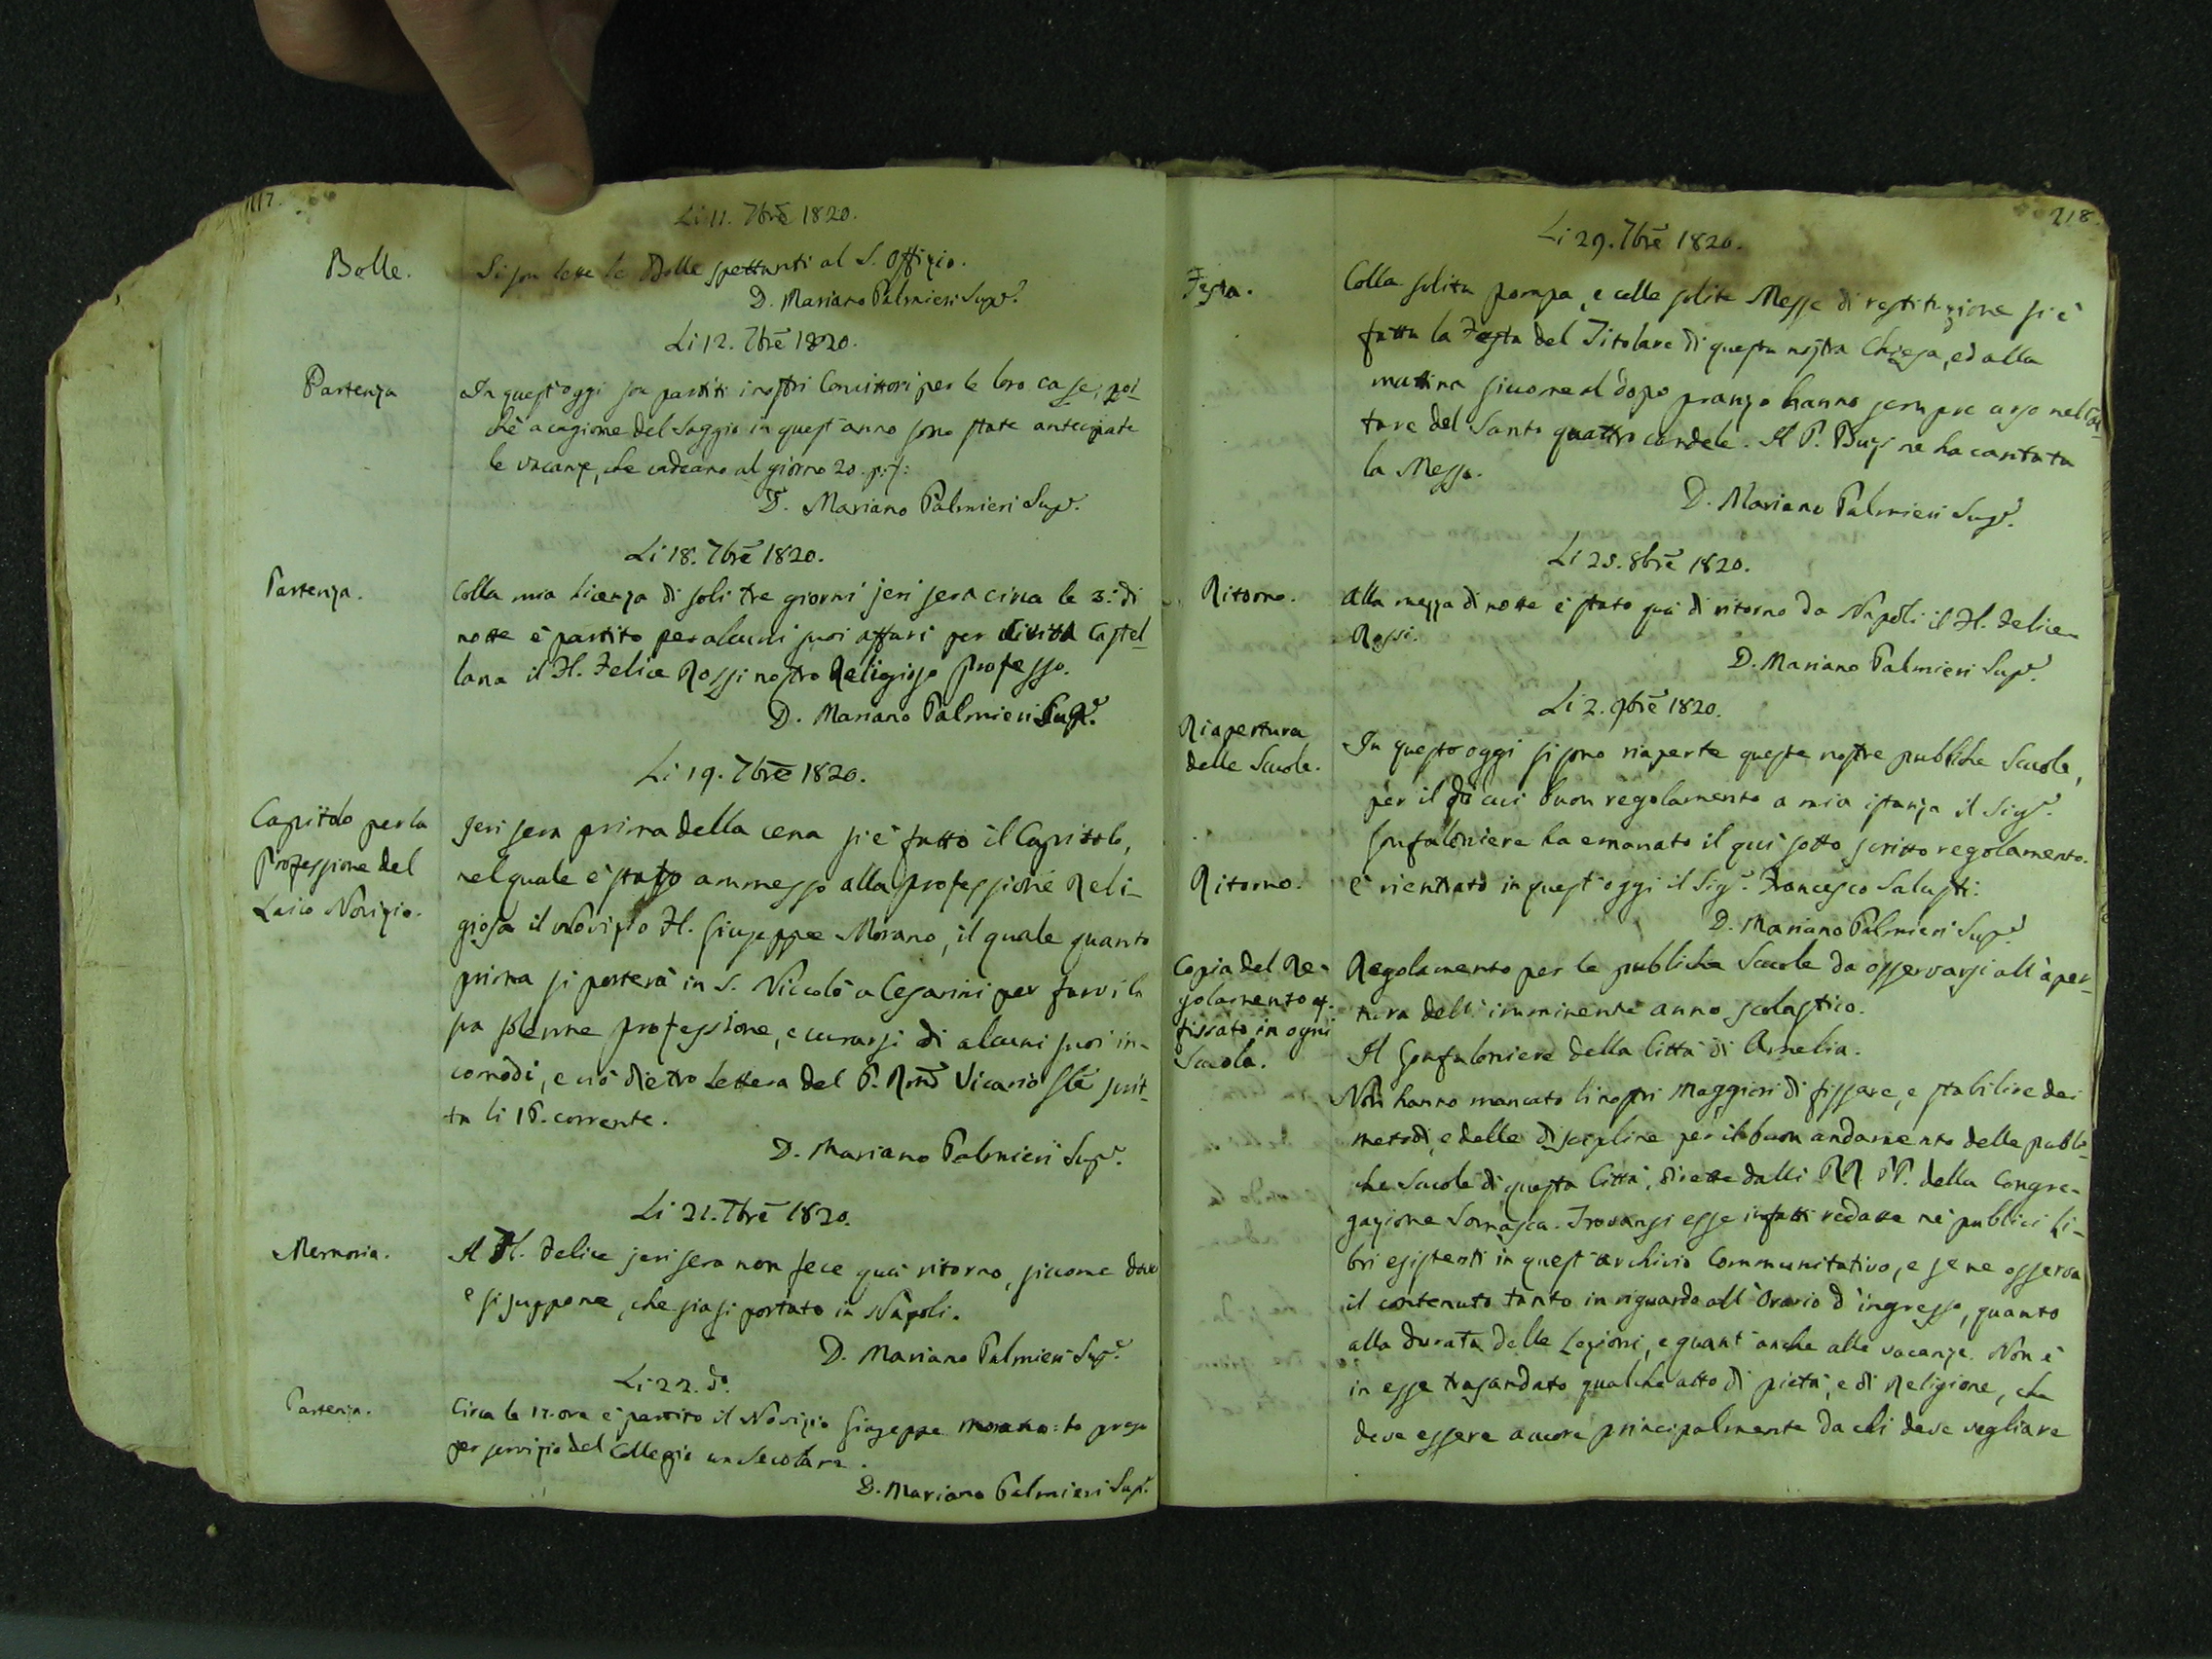 217.
Li 11. 7bre 1820.
Bolle.
Si son lette le Bolle spettanti al S. Offizio.
D. Mariano Palmieri Supre.
Li 12. 7bre 1820.
Partenza
In quest'oggi son partiti i nostri Convittori per le loro case, poi-
chè a cagione del Saggio in quest'anno sono state antecipate
le vacanze, che cadeano al giorno 20. p:f:
D. Mariano Palmieri Supr.
Li 18. 7bre 1820.
Partenza.
Colla mia Licenza di soli tre giorni jeri sera circa le 3. di
notte è partito per alcuni suoi affari per Civita Castel-
lana il H. Felice Rossi nostro Religioso professo.
D. Mariano Palmieri Supr.
Li 19. 7bre 1820.
Capitolo per la
Professione del
Laico Novizio.
Jeri sera prima della cena si è fatto il Capitolo,
nel quale è stato ammesso alla professione Reli-
giosa il Novizio H. Giuseppe Morano, il quale quanto
prima si porterà in S. Niccolò a Cesarini per farvi la
sua solenne professione, e curarsi di alcuni suoi in-
comodi, e ciò dietro Lettera del P. Rmo Vicario Gle scrit-
ta li 16. corrente.
D. Mariano Palmieri Supr.
Li 21. 7bre 1820.
Memoria.
Il H. Felice jeri sera non fece quà ritorno, siccome dovea
e si suppone, che siasi portato in Napoli.
D. Mariano Palmieri Supr.
Li 22. do.
Partenza.
Circa le 12. ore è partito il Novizio Giuseppe Morano: ho preso
per servizio del Collegio un Secolare.
D. Mariano Palmieri Supr.
218.
Li 29. 7bre 1820.
Festa.
Colla solita pompa, e colle solite Messe di restituzione si è
fatta la Festa del Titolare di questa nostra Chiesa, ed alla
mattina siccome al dopo pranzo hanno sempre arso nell'Al-
tare del Santo quattro candele. Il P. ne ha cantata
la Messa.
D. Mariano Palmieri Supr.
Li 25. 8bre 1820.
Ritorno.
Alla mezza di notte è stato quà di ritorno da Napoli il H. Felice
Rossi.
D. Mariano Palmieri Supr.
Li 2. 9bre 1820.
Riapertura
delle Scuole.
In quest'oggi si sono riaperte queste nostre pubbliche Scuole,
per il di cui buon regolamento a mia istanza il Sigr.
Gonfaloniere ha emanato il quì sotto scritto regolamento.
Ritorno.
È rientrato in quest'oggi il Sigr. Francesco Salustj.
D. Mariano Palmieri Supr.
Copia del Re-
golamento af-
fissato in ogni
Scuola.
Regolamento per le pubbliche Scuole da osservarsi all'aper-
tura dell'imminente anno scolastico.
Il Gonfaloniere della Città di Amelia.
Non hanno mancato li nostri Maggiori di fissare, e stabilire dei
metodi, e delle discipline per il buon andamento delle pubbli-
che Scuole di questa Città, dirette dalli RR. PP. della Congre-
gazione Somasca. Trovansi esse infatti redatte ne' pubblici Li-
bri esistenti in quest'archivio Communitativo, e se ne osserva
il contenuto tanto in riguardo all'Orario d'ingresso, quanto
alla durata delle Lezioni, e quant'anche alle vacanze. Non è
in esse trasandato qualche atto di pietà, e di Religione, che
deve essere a cuore principalmente da chi deve vegliare